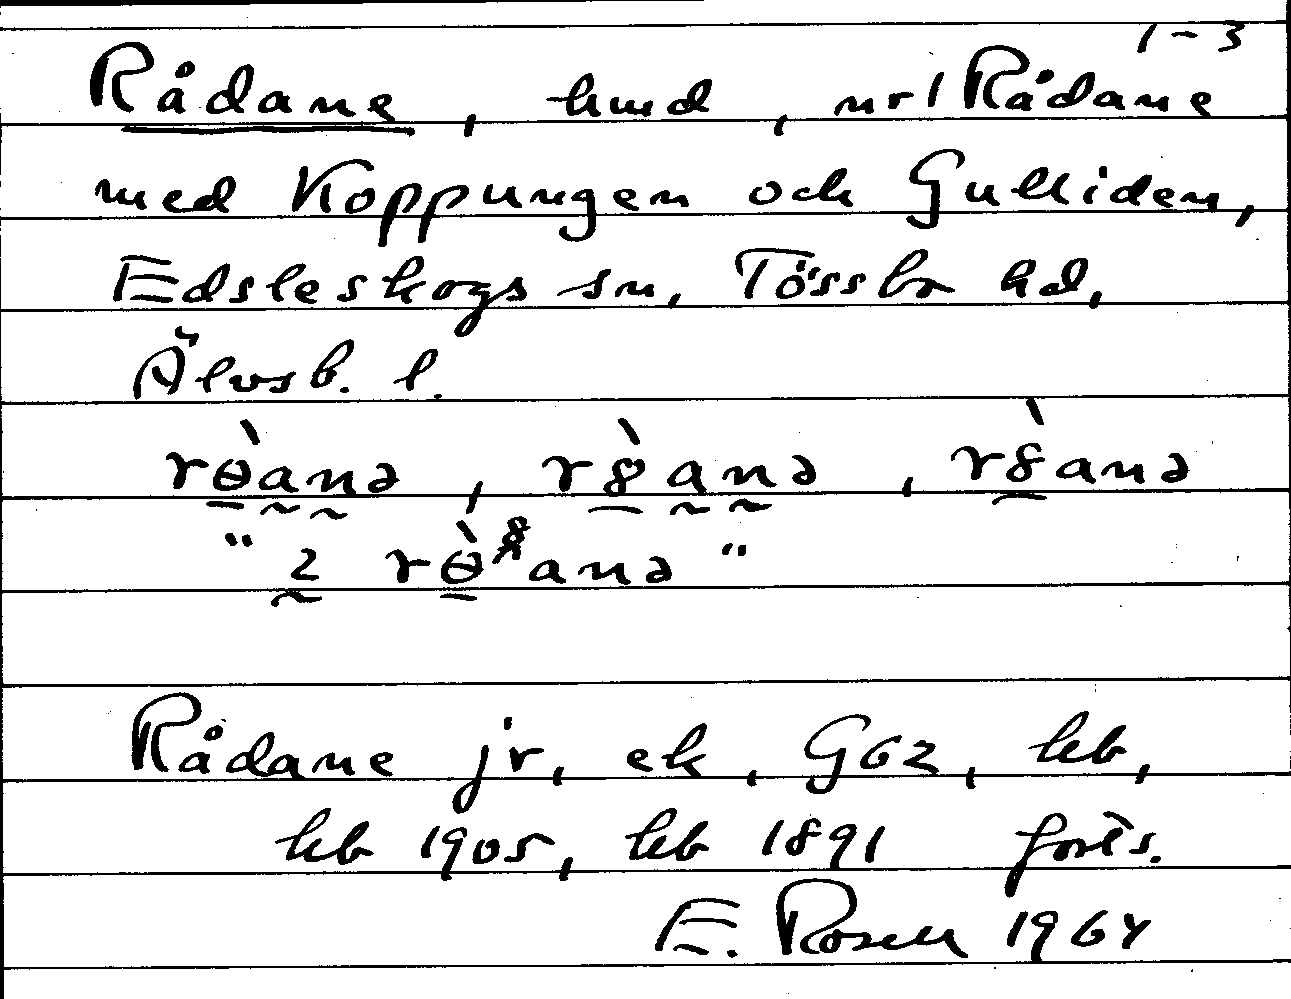 1-3
Rådane, hmd, nr 1 Rådane
med Koppungen och Gulliden,
Edsleskogs sn, Tössbo hd,
Älvsb. l.
rɵ̀anə, r8̀anə, r8̀anə
" 2 rɵ̀⁸anə "
Rådane jr, ek, G62, hb,
hb 1905, hb 1891 forts.
E. Rosell 1964